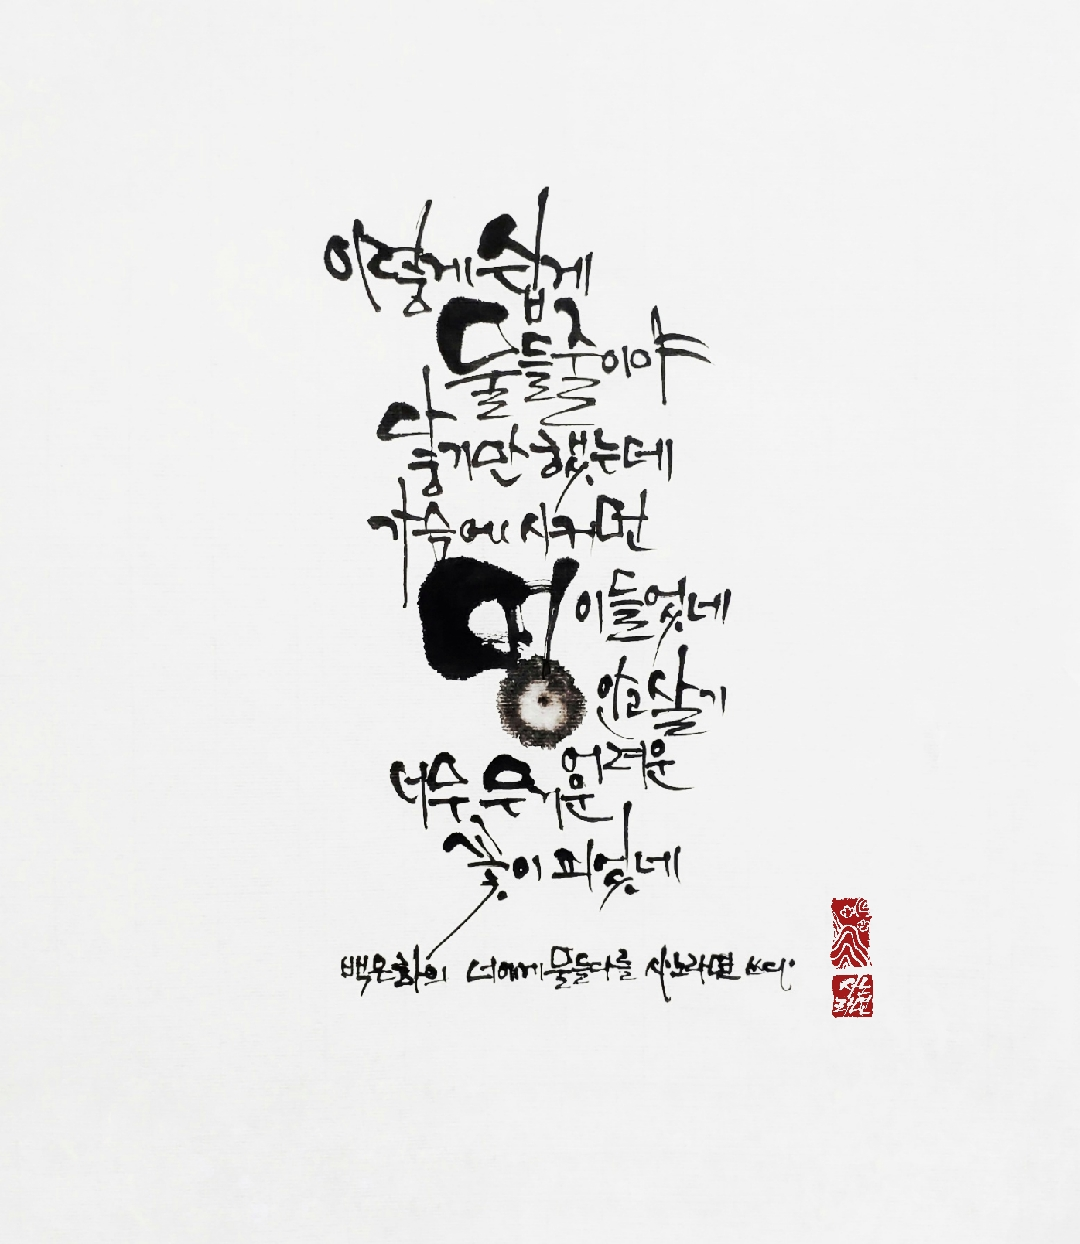 이렇게 쉽게
물들 줄이야
닿기만 했는데
가슴에 시커먼
멍이 들었네
안고 살기
어려운
너무 무거운
꽃이 피었네
백은하의 너에게 물들다를 쓰다.